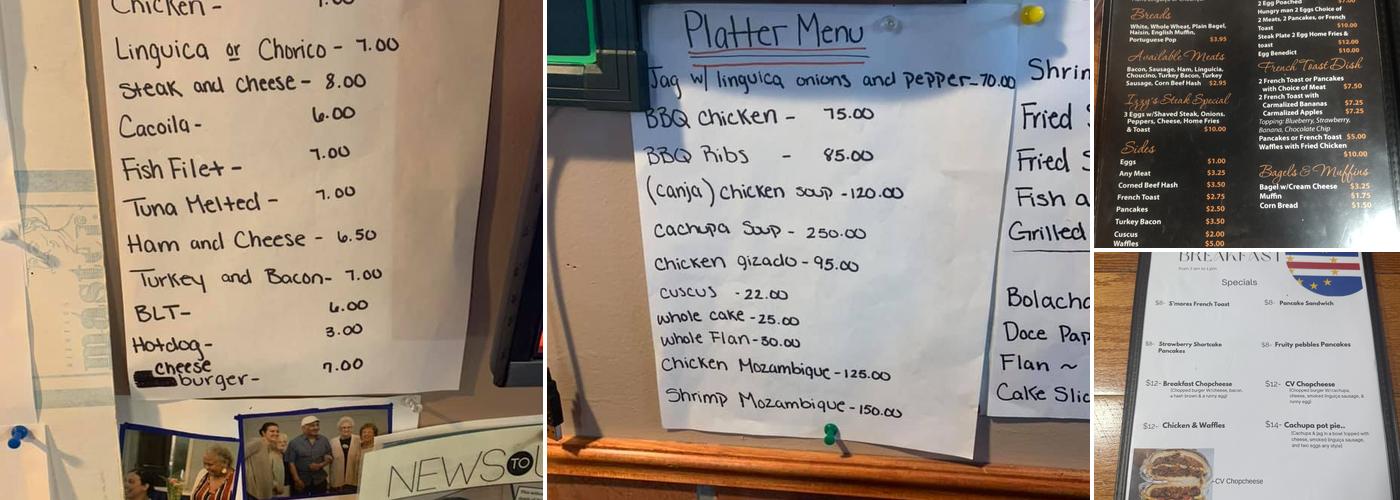 Chicken - 7.00
Linguica or Chorico - 7.00
Steak and Cheese - 8.00
Cacoila - 6.00
Fish Filet - 7.00
Tuna Melted - 7.00
Ham and Cheese - 6.50
Turkey and Bacon - 7.00
BLT - 6.00
Hotdog - 3.00
cheese
burger - 7.00
NEWS TO
Platter Menu
Jag w/ linguica onions and pepper - 70.00
BBQ chicken - 75.00
BBQ Ribs - 85.00
(canja) chicken soup - 120.00
cachupa soup - 250.00
chicken gizado - 95.00
cuscus - 22.00
whole cake - 25.00
whole Flan - 50.00
Chicken Mozambique - 125.00
Shrimp Mozambique - 150.00
Shrim
Fried
Fried
Fish a
Grilled
Bolacha
Doce Pap
Flan ~
Cake Slic
Breads
White, Whole Wheat, Plain Bagel,
Raisin, English Muffin,
Portuguese Pop $3.95
Available Meats
Bacon, Sausage, Ham, Linguicia,
Choucino, Turkey Bacon, Turkey
Sausage, Corn Beef Hash $2.95
Izzy's Steak Special
3 Eggs w/Shaved Steak, Onions,
Peppers, Cheese, Home Fries
& Toast $10.00
Sides
Eggs $1.00
Any Meat $3.25
Corned Beef Hash $3.50
French Toast $2.75
Pancakes $2.50
Turkey Bacon $3.50
Cuscus $2.00
Waffles $5.00
2 Egg Poached $7.00
Hungry man 2 Eggs Choice of
2 Meats, 2 Pancakes, or French
Toast $10.00
Steak Plate 2 Egg Home Fries &
toast $12.00
Egg Benedict $10.00
French Toast Dish
2 French Toast or Pancakes
with Choice of Meat $7.50
2 French Toast with
Carmalized Bananas $7.25
Carmalized Apples $7.25
Topping: Blueberry, Strawberry,
Banana, Chocolate Chip
Pancakes or French Toast $5.00
Waffles with Fried Chicken
$10.00
Bagels & Muffins
Bagel w/Cream Cheese $3.25
Muffin $1.75
Corn Bread $1.50
BREAKFAST
Specials
$8- S'mores French Toast
$8- Pancake Sandwich
$8- Strawberry Shortcake
Pancakes
$8- Fruity pebbles Pancakes
$12- Breakfast Chopcheese
(Chopped burger W/cheese, bacon,
a hash brown & a runny egg)
$12- CV Chopcheese
(Chopped burger W/cachupa,
cheese, smoked linguiça sausage, &
runny egg)
$12- Chicken & Waffles
$14- Cachupa pot pie..
(Cachupa & Jag in a bowl topped with
cheese, smoked linguiça sausage,
and two eggs any style)
CV Chopcheese